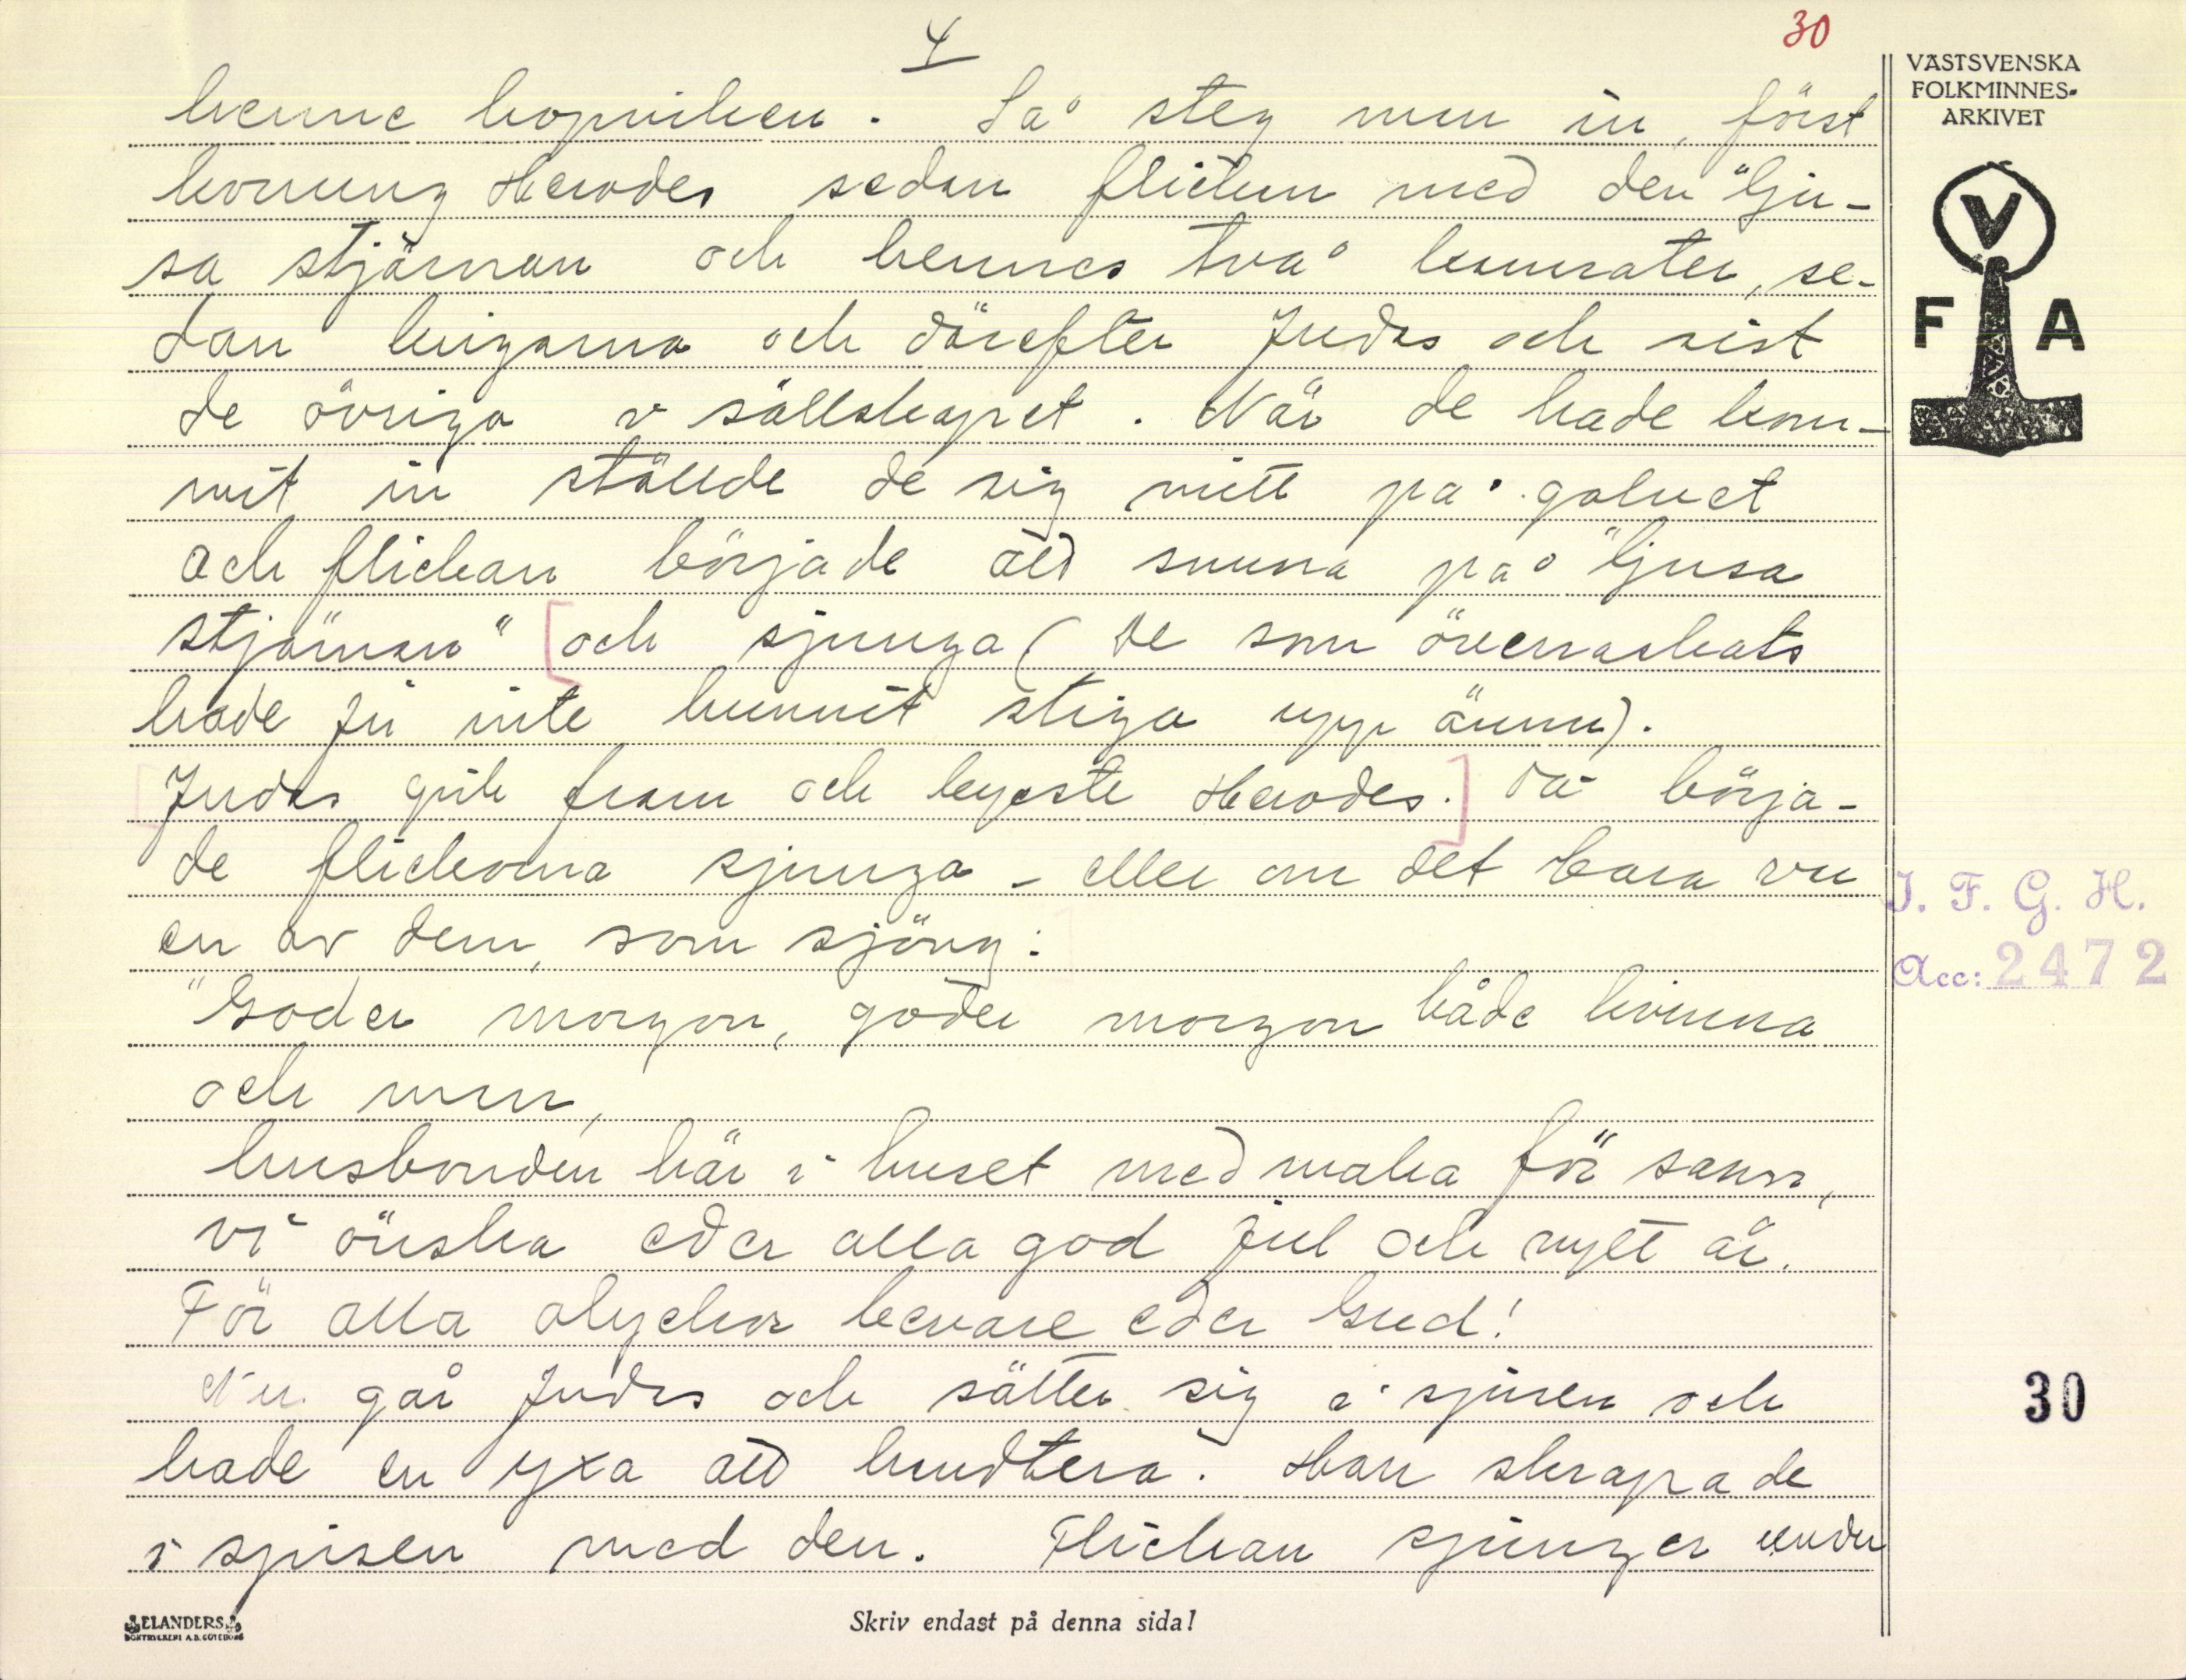 4
30
VÄSTSVENSKA
FOLKMINNES-
ARKIVET
henne kopviken. Så steg man in, först
konung Herodes sedan flickan med den "lju-
sa stjärnan och hennes två kamrater, se-
dan krigarna och därefter Judas och sist
de övriga i sällskapet. När de hade kom-
mit in ställde de sig mitt på golvet
och flickan började att snurra på "ljusa
stjärnan" [och sjunga (de som överraskats
hade ju inte hunnit stiga upp ännu).
[Judas gick fram och kysste Herodes.] Då börja-
de flickorna sjunga - eller om det bara var
en av dem, som sjöng:
"Goder morgon, goder morgon både kvinna
och man,
husbonden här i huset med maka för sann,
vi önska eder alla god jul och nytt år.
För alla olyckor bevare eder Gud!
Nu går Judas och sätter sig i spisen och
hade en yxa att handtera. Han skrapade
i spisen med den. Flickan sjunger under
V
F A
I. F. G. H.
Acc: 2472
30
ELANDERS
BOKTRYCKERI A.B. GÖTEBORG
Skriv endast på denna sida!